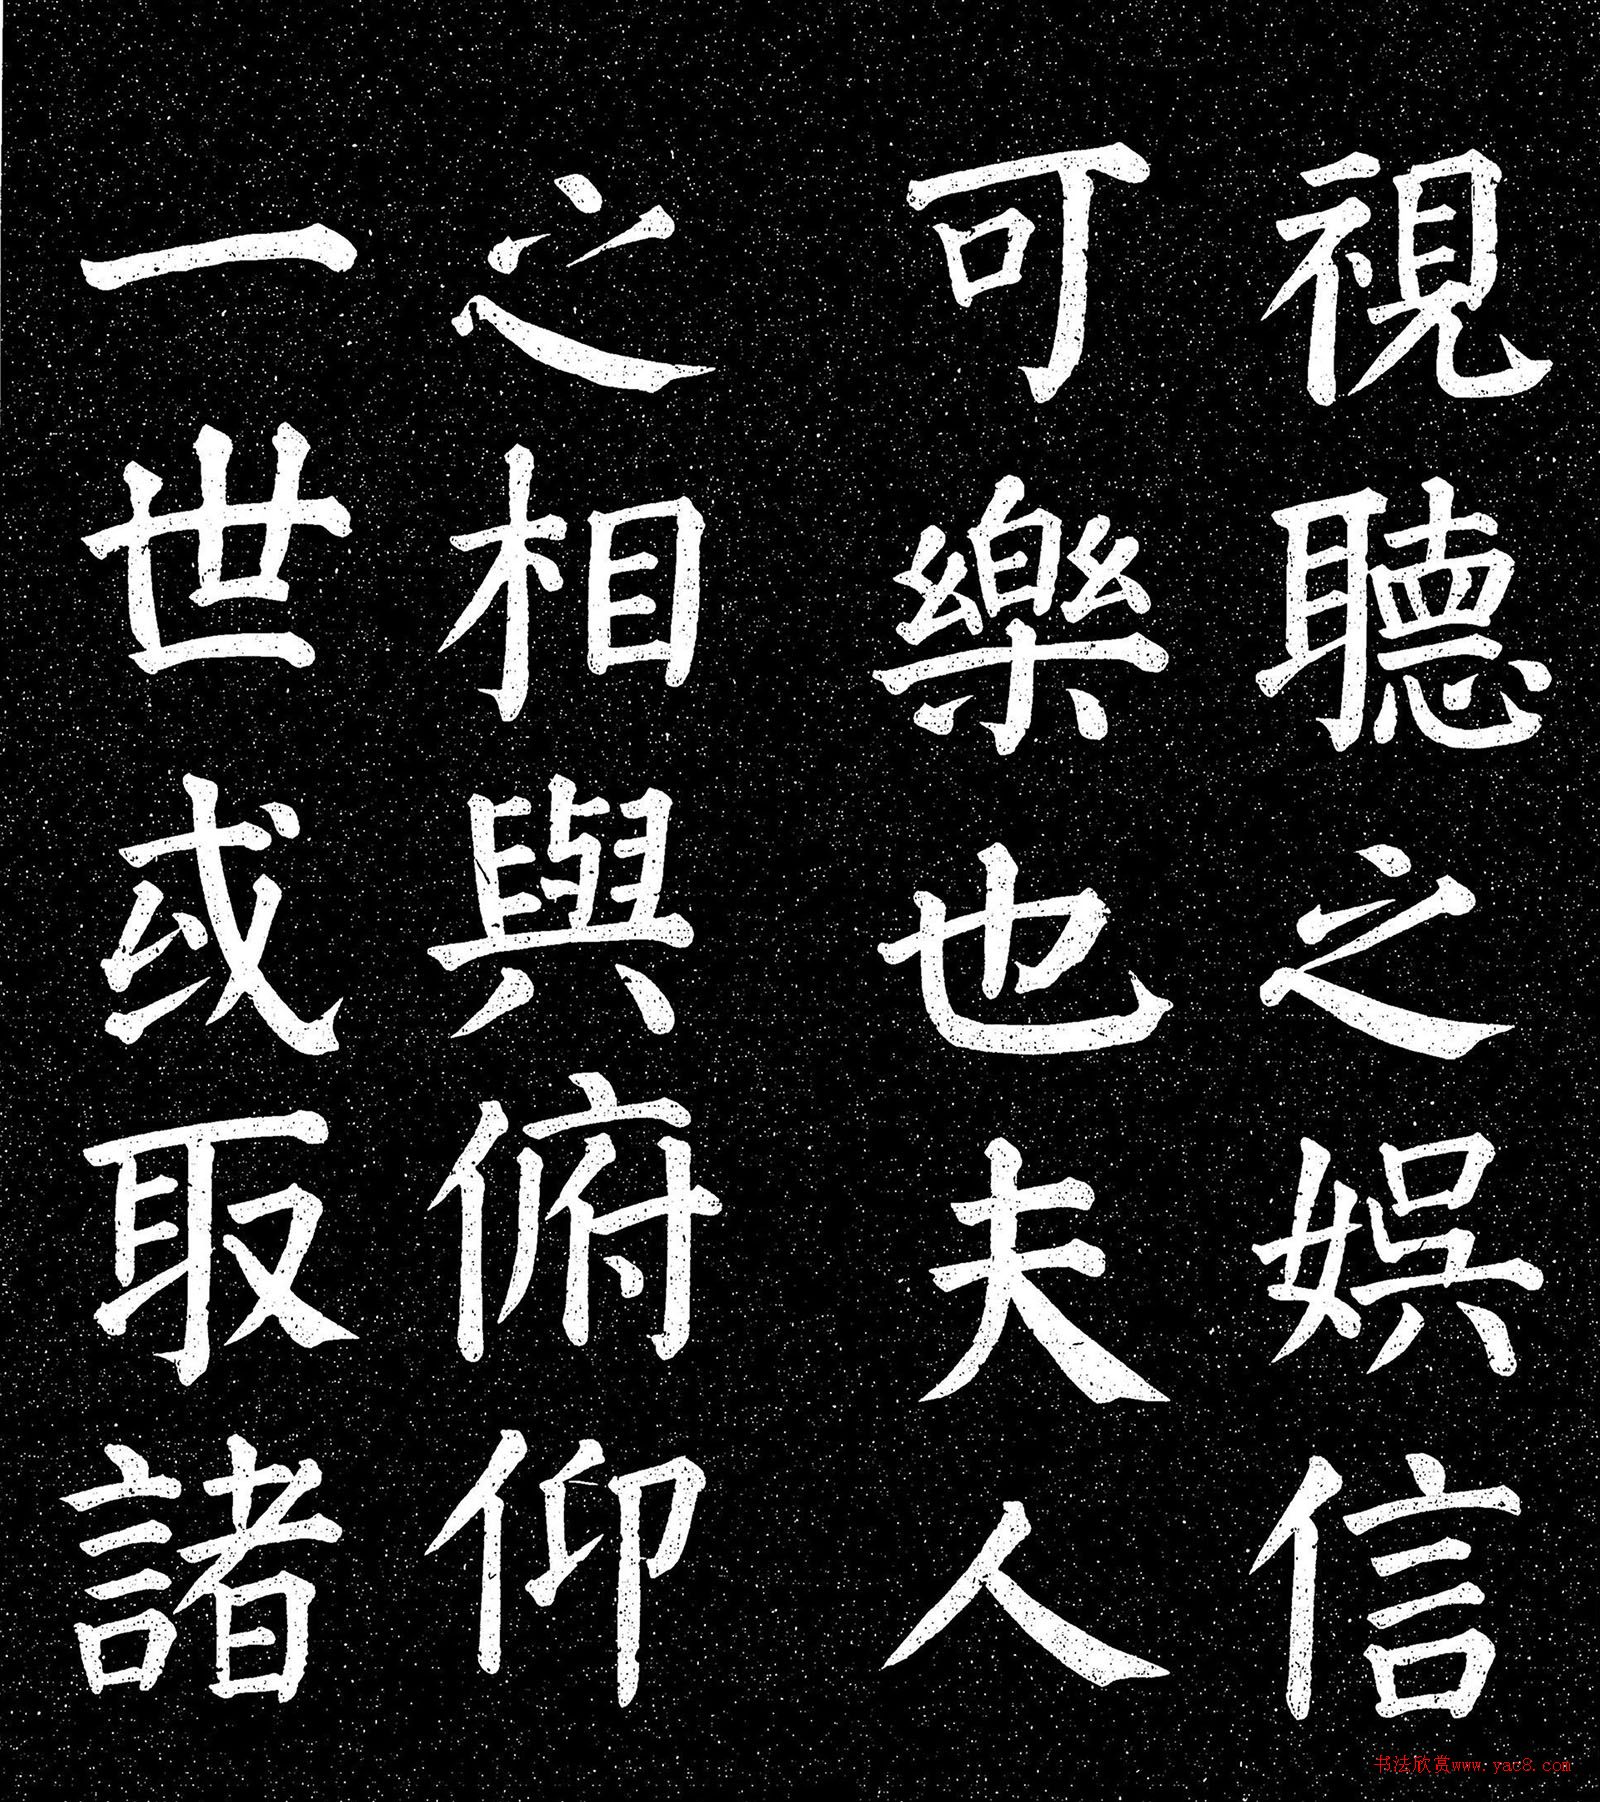 視聽之娛信
可樂也夫人
之相與俯仰
一世或取諸
书法欣赏www.yac8.com